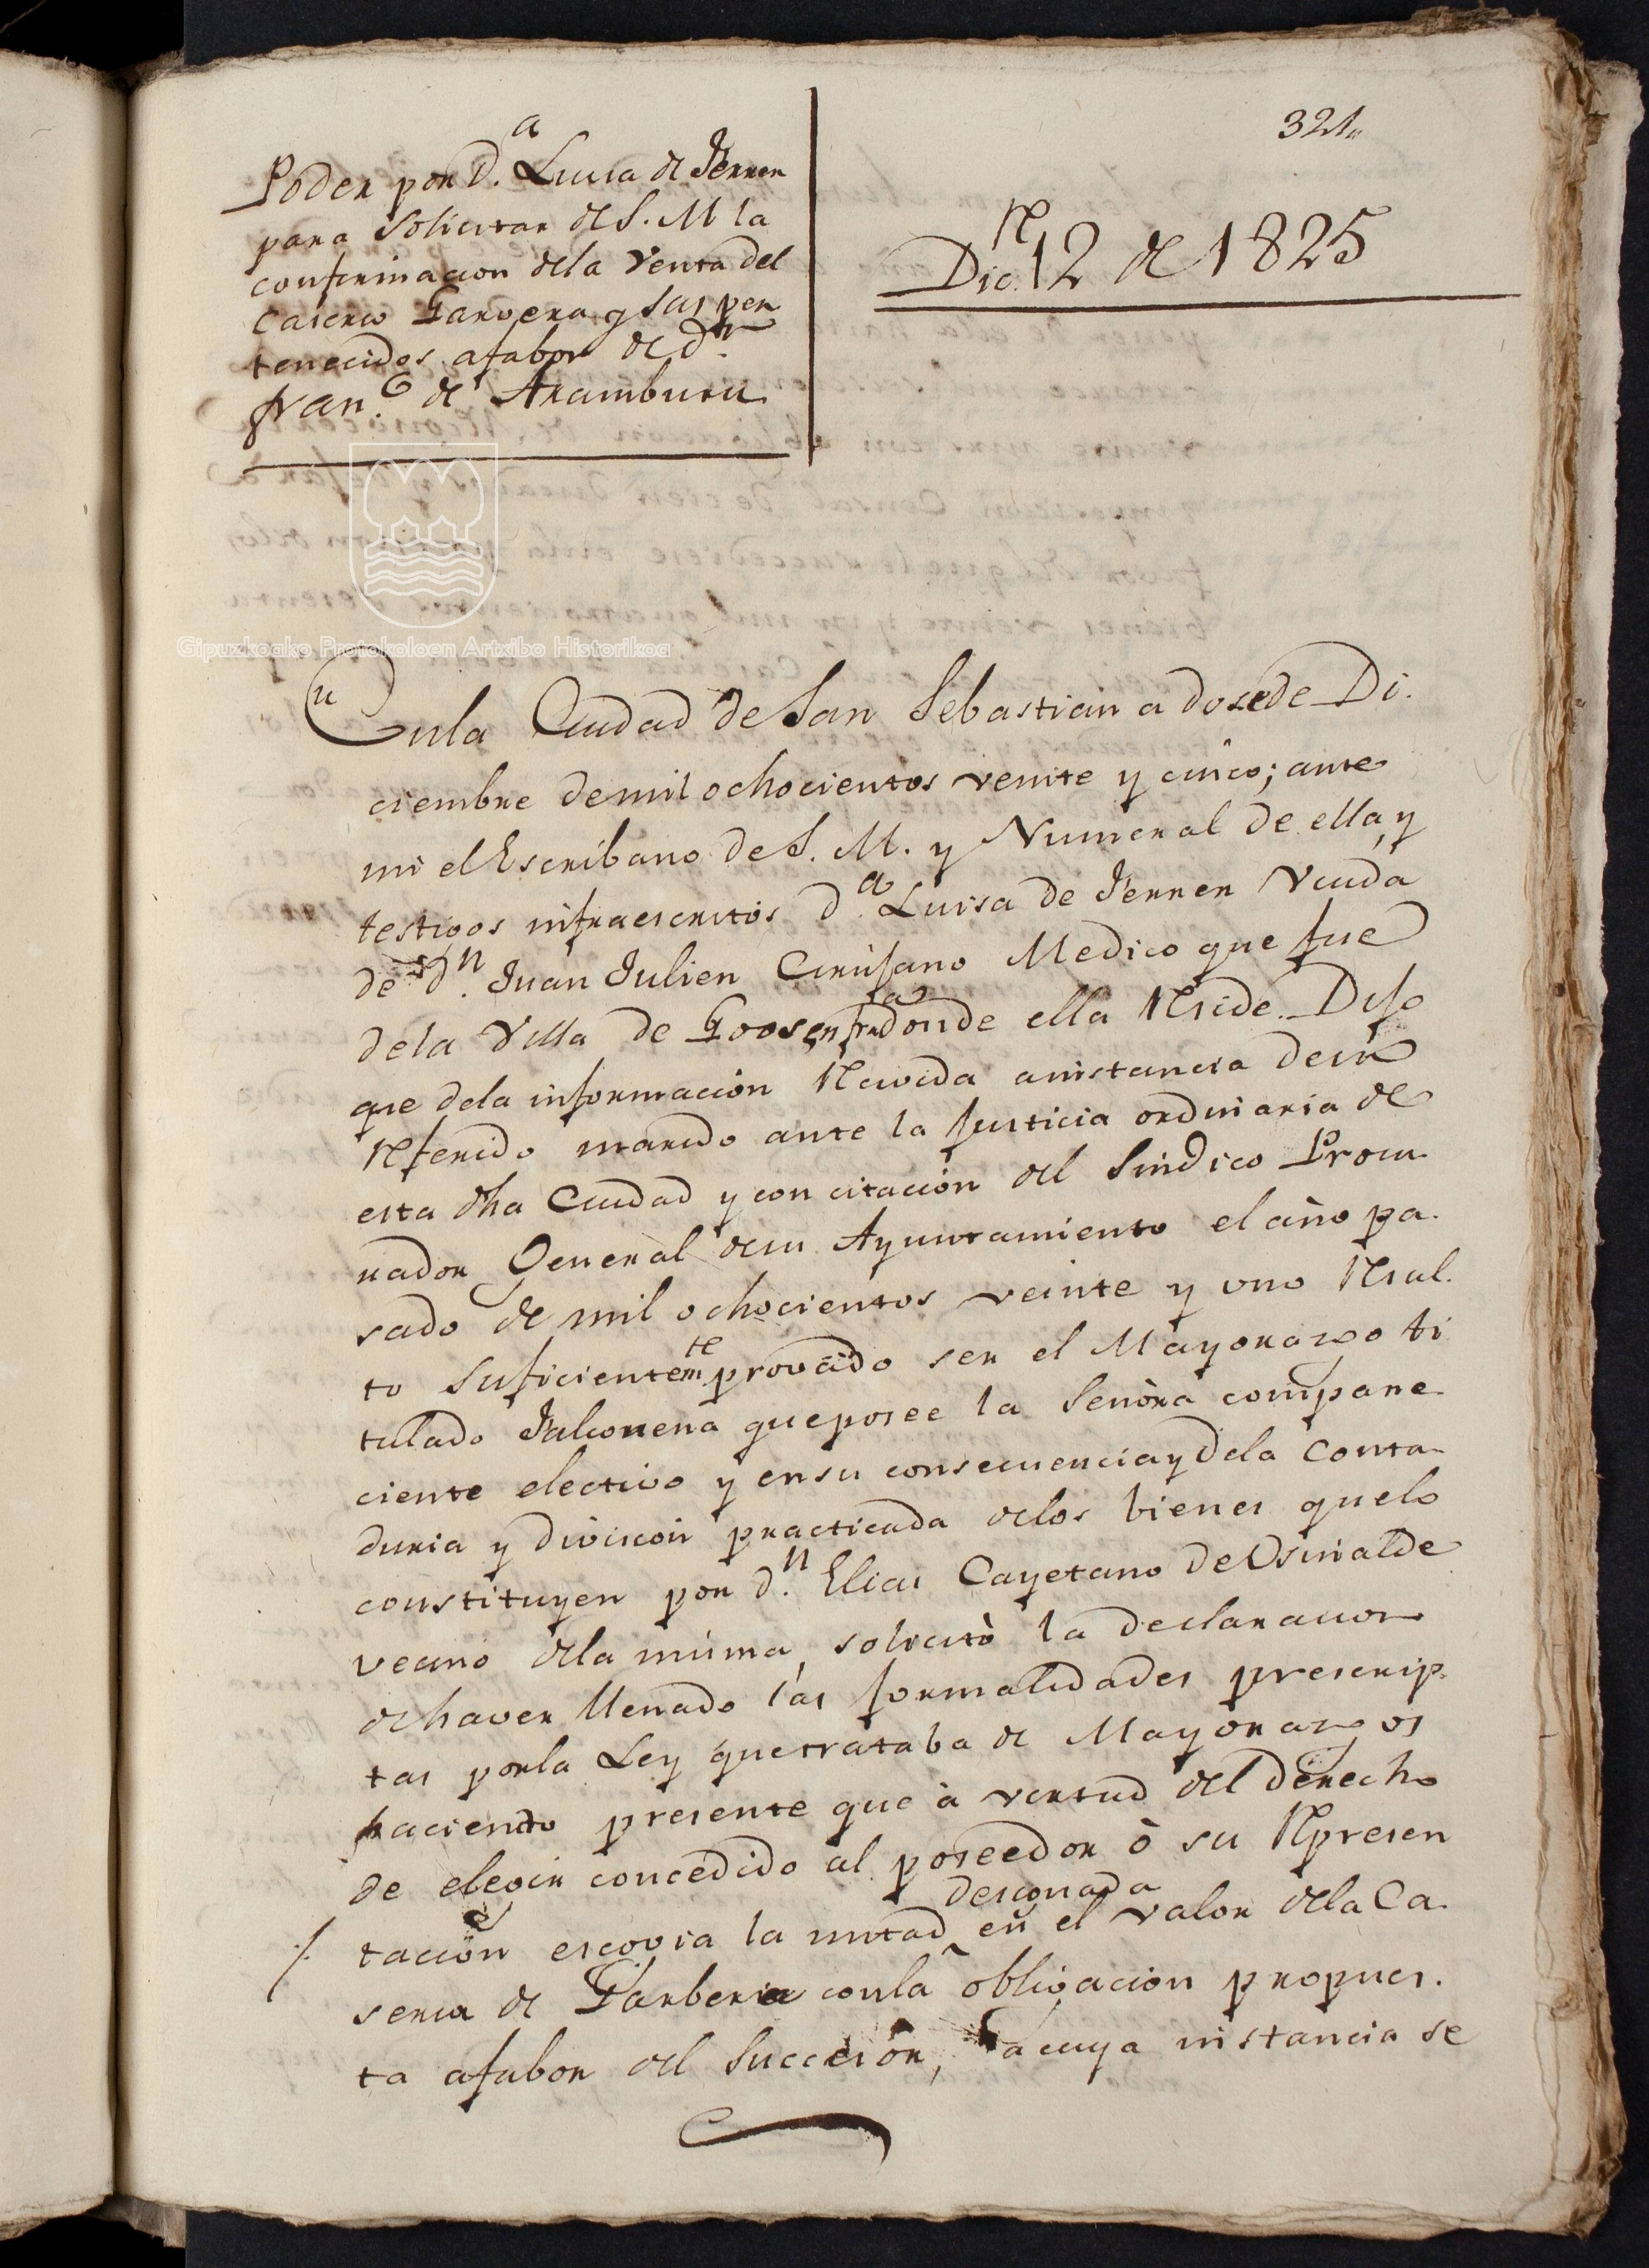 321
Poder por D.ª Luisa de Ferrer
para solicitar de S. M la
confirmacion dela Venta del
Caserio Garvera y sus per
tenecidos afabor de d.n
fran.co de Aramburu
Dic.re 12 de 1825
Gipuzkoako Protokoloen Artxibo Historikoa
Enla Ciudad de San Sebastian a dose de Di.
ciembre demil ochocientos veinte y cinco; ante
mi el Escribano de S. M. y Numeral de ella, y
testigos infraescritos d.ª Luisa de Ferrer Viuda
de d.n Juan Julien Cirujano Medico que fue
dela Villa de donde ella Reside. Dijo
que dela informacion Recivida ainstancia desu
Referido marido ante la Justicia ordinaria de
esta dha Ciudad y con citacion del Sindico Procu
rador General desu Ayuntamiento el año pa.
sado de mil ochocientos veinte y uno Resul.
to suficientem.te provado ser el Mayorazgo ti
tulado Falconena queposee la Señora compare
ciente electivo y ensu consecuencia y dela Conta
duria y divicion practicada delos bienes quelo
constituyen por d.n Elias Cayetano de Osinalde
vecino dela misma, solicitò la declaracion
de haver llenado las formalidades prescrip
tas porla Ley quetrataba de Mayorazgos
haciendo presente que à vertud del derecho
de elegir concedido al poseedor ò su Represen
designada
/. tacion escogia la mitad en el valor dela Ca.
seria de Garbera conla obligacion propues.
ta afabor del Succesor, acuya instancia se